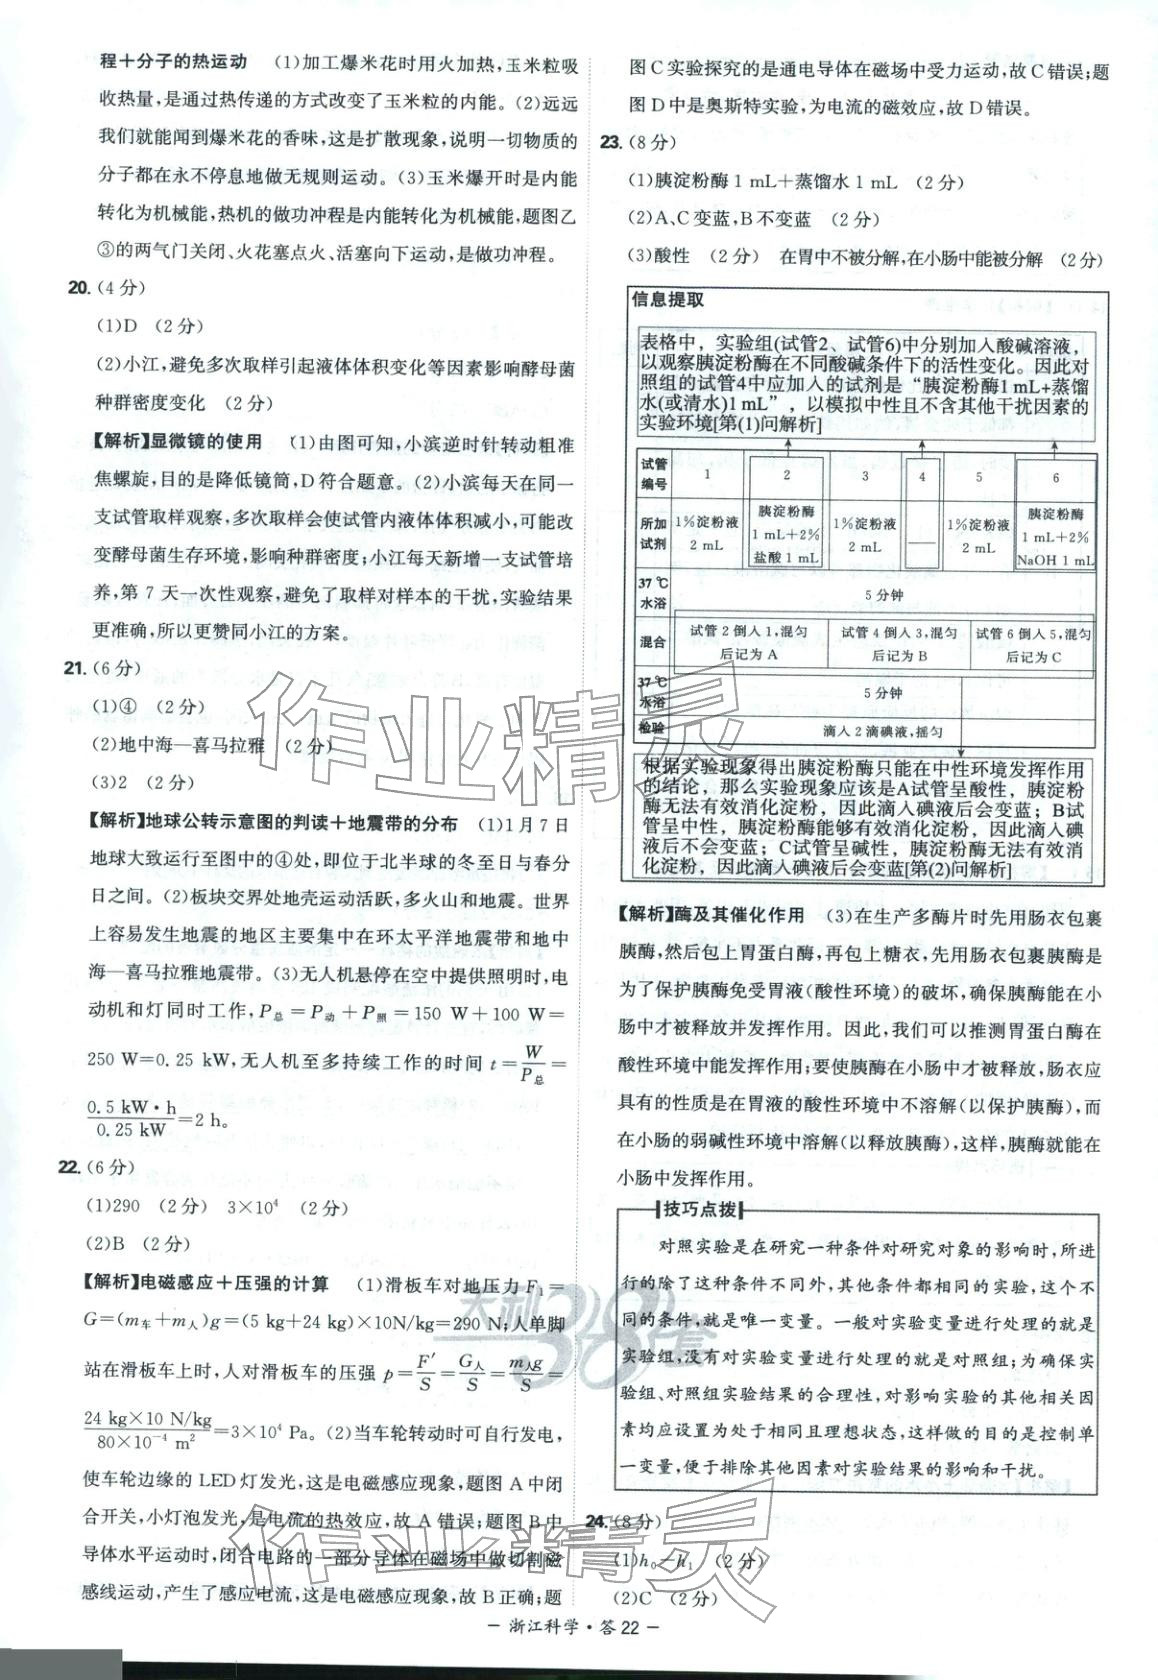 程＋分子的热运动　(1)加工爆米花时用火加热，玉米粒吸
收热量，是通过热传递的方式改变了玉米粒的内能。(2)远远
我们就能闻到爆米花的香味，这是扩散现象，说明一切物质的
分子都在永不停息地做无规则运动。(3)玉米爆开时是内能
转化为机械能，热机的做功冲程是内能转化为机械能，题图乙
③的两气门关闭、火花塞点火、活塞向下运动，是做功冲程。
20. (4分)
(1)D　(2分)
(2)小江，避免多次取样引起液体体积变化等因素影响酵母菌
种群密度变化　(2分)
【解析】显微镜的使用　(1)由图可知，小滨逆时针转动粗准
焦螺旋，目的是降低镜筒，D符合题意。(2)小滨每天在同一
支试管取样观察，多次取样会使试管内液体体积减小，可能改
变酵母菌生存环境，影响种群密度；小江每天新增一支试管培
养，第 7 天一次性观察，避免了取样对样本的干扰，实验结果
更准确，所以更赞同小江的方案。
21. (6分)
(1)④　(2分)
(2)地中海—喜马拉雅　(2分)
(3)2　(2分)
【解析】地球公转示意图的判读＋地震带的分布　(1)1月7日
地球大致运行至图中的④处，即位于北半球的冬至日与春分
日之间。(2)板块交界处地壳运动活跃，多火山和地震。世界
上容易发生地震的地区主要集中在环太平洋地震带和地中
海—喜马拉雅地震带。(3)无人机悬停在空中提供照明时，电
动机和灯同时工作，P总＝P动＋P照＝150 W＋100 W＝
250 W＝0.25 kW，无人机至多持续工作的时间 t＝W/P总＝
0.5 kW·h/0.25 kW＝2 h。
22. (6分)
(1)290　(2分)　3×10⁴　(2分)
(2)B　(2分)
【解析】电磁感应＋压强的计算　(1)滑板车对地压力 F₁＝
G＝(m车＋m人)g＝(5 kg＋24 kg)×10N/kg＝290 N；人单脚
站在滑板车上时，人对滑板车的压强 p＝F′/S＝G人/S＝m人g/S＝
24 kg×10 N/kg/80×10⁻⁴ m²＝3×10⁴ Pa。(2)当车轮转动时可自行发电，
使车轮边缘的 LED灯发光，这是电磁感应现象，题图 A 中闭
合开关，小灯泡发光，是电流的热效应，故 A 错误；题图 B 中
导体水平运动时，闭合电路的一部分导体在磁场中做切割磁
感线运动，产生了感应电流，这是电磁感应现象，故 B 正确；题
图 C 实验探究的是通电导体在磁场中受力运动，故 C 错误；题
图 D 中是奥斯特实验，为电流的磁效应，故 D 错误。
23. (8分)
(1)胰淀粉酶 1 mL＋蒸馏水 1 mL　(2分)
(2)A、C 变蓝，B 不变蓝　(2分)
(3)酸性　(2分)　在胃中不被分解，在小肠中能被分解　(2分)
信息提取
表格中，实验组(试管2、试管6)中分别加入酸碱溶液，
以观察胰淀粉酶在不同酸碱条件下的活性变化。因此对
照组的试管4中应加入的试剂是“胰淀粉酶1 mL+蒸馏
水(或清水)1 mL”，以模拟中性且不含其他干扰因素的
实验环境[第(1)问解析]
试管编号　1　2　3　4　5　6
所加试剂　1%淀粉液 2 mL　胰淀粉酶 1 mL＋2% 盐酸 1 mL　1%淀粉液 2 mL　　1%淀粉液 2 mL　胰淀粉酶 1 mL＋2% NaOH 1 mL
37 ℃水浴　5分钟
混合　试管 2 倒入 1，混匀后记为 A　试管 4 倒入 3，混匀后记为 B　试管 6 倒入 5，混匀后记为 C
37 ℃水浴　5分钟
检验　滴入 2 滴碘液，摇匀
根据实验现象得出胰淀粉酶只能在中性环境发挥作用
的结论，那么实验现象应该是A试管呈酸性，胰淀粉
酶无法有效消化淀粉，因此滴入碘液后会变蓝；B试
管呈中性，胰淀粉酶能够有效消化淀粉，因此滴入碘
液后不会变蓝；C试管呈碱性，胰淀粉酶无法有效消
化淀粉，因此滴入碘液后会变蓝[第(2)问解析]
【解析】酶及其催化作用　(3)在生产多酶片时先用肠衣包裹
胰酶，然后包上胃蛋白酶，再包上糖衣，先用肠衣包裹胰酶是
为了保护胰酶免受胃液(酸性环境)的破坏，确保胰酶能在小
肠中才被释放并发挥作用。因此，我们可以推测胃蛋白酶在
酸性环境中能发挥作用；要使胰酶在小肠中才被释放，肠衣应
具有的性质是在胃液的酸性环境中不溶解(以保护胰酶)，而
在小肠的弱碱性环境中溶解(以释放胰酶)，这样，胰酶就能在
小肠中发挥作用。
技巧点拨
对照实验是在研究一种条件对研究对象的影响时，所进
行的除了这种条件不同外，其他条件都相同的实验，这个不
同的条件，就是唯一变量。一般对实验变量进行处理的就是
实验组，没有对实验变量进行处理的就是对照组；为确保实
验组、对照组实验结果的合理性，对影响实验的其他相关因
素均应设置为处于相同且理想状态，这样做的目的是控制单
一变量，便于排除其他因素对实验结果的影响和干扰。
24. (8分)
(1)h₀－h₁　(2分)
(2)C　(2分)
－ 浙江科学·答 22 －
作业精灵
天利38套
作业精灵